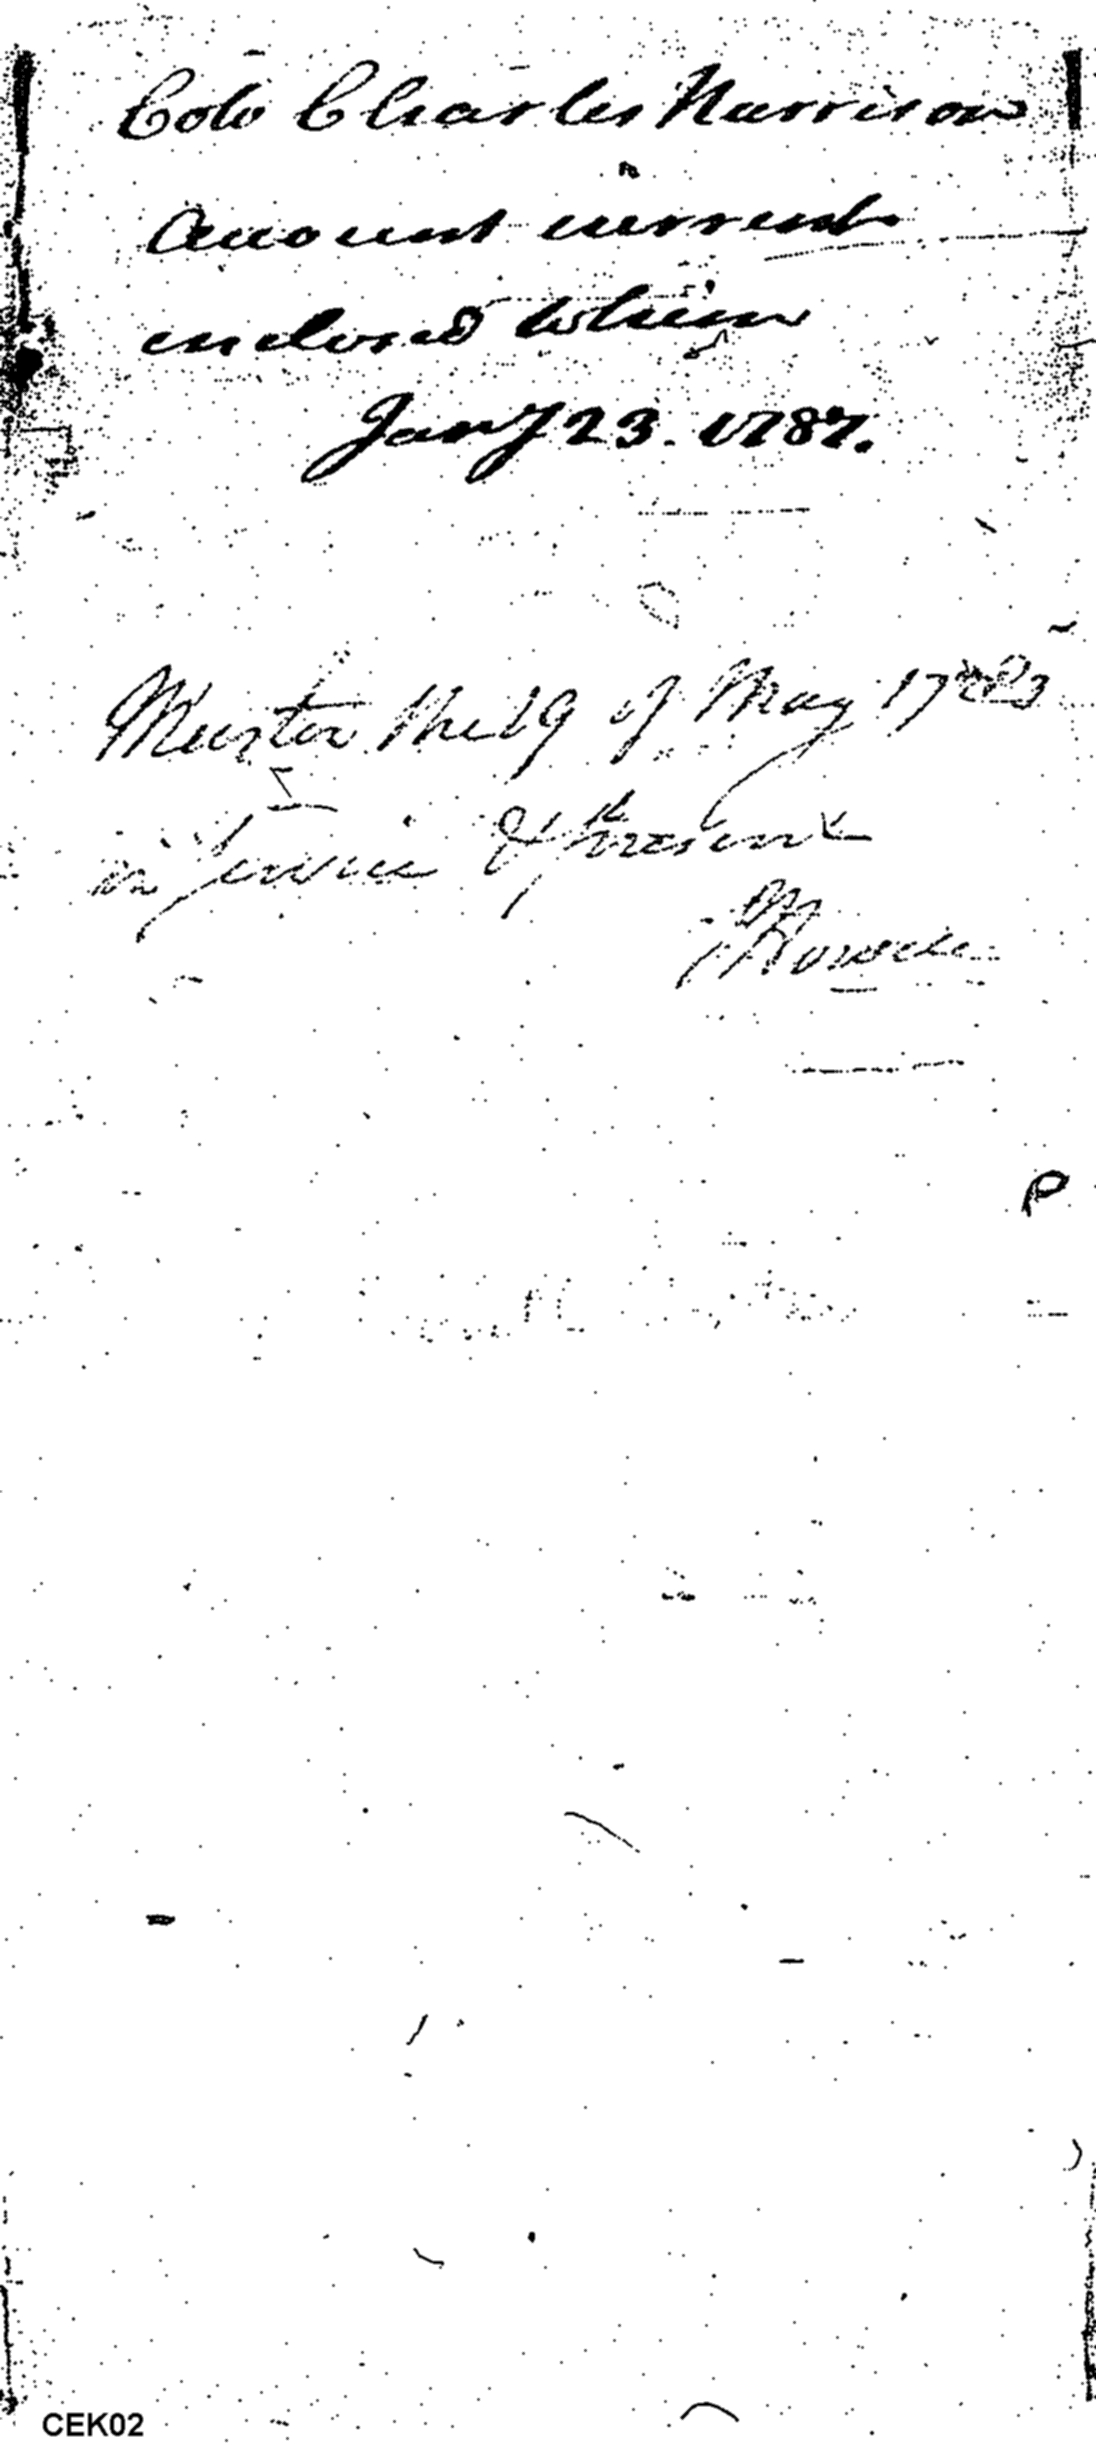 Colo Charles Harrison
Account current
enclosed to him
Jany 23. 1787.
Muster the 19 of May 1783
in Service & present
P
CEK02